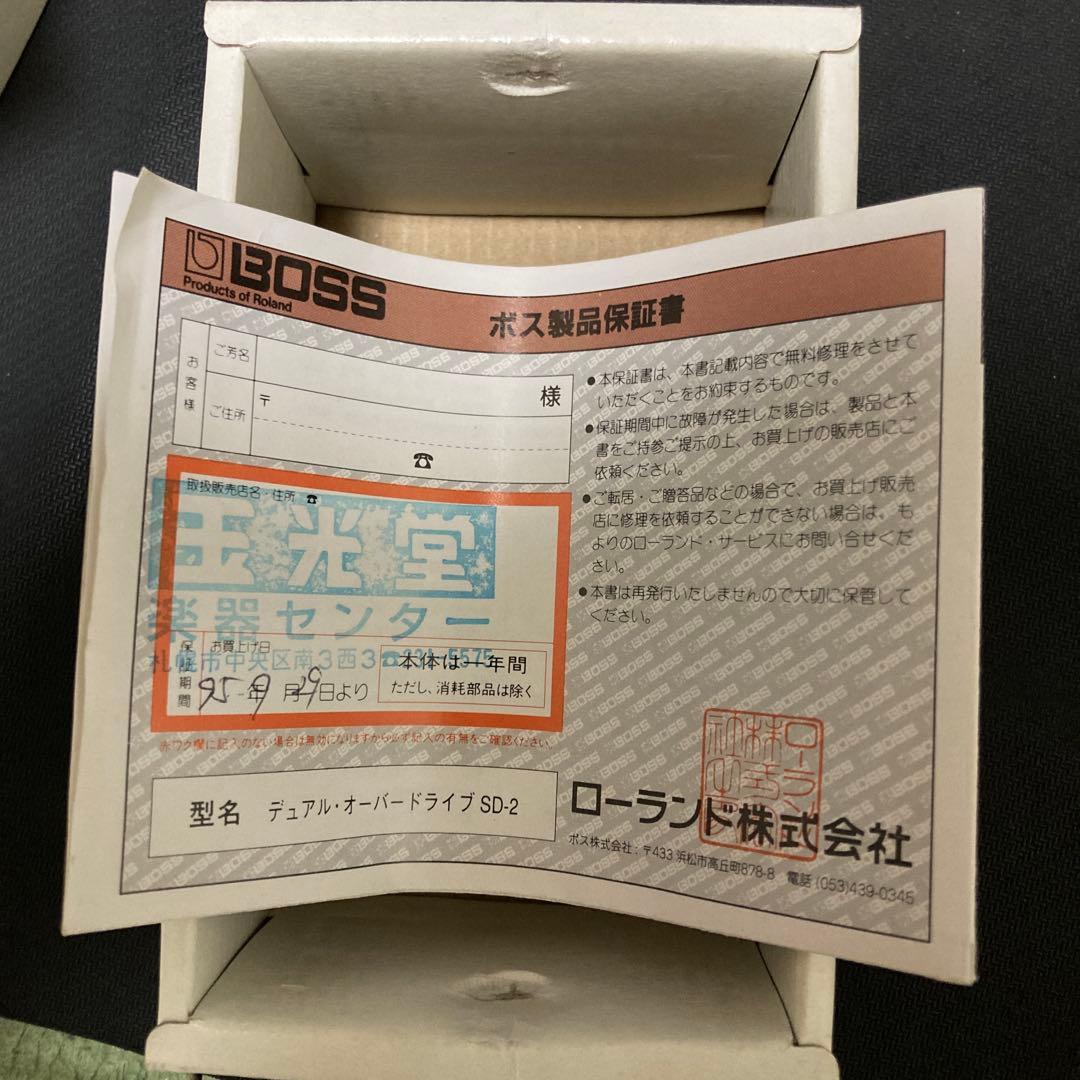 BOSS
Products of Roland
ボス製品保証書
お客様
ご芳名
様
ご住所
〒
☎
取扱販売店名・住所 ☎
玉光堂
楽器センター
札幌市中央区南3西3☎221-5575
保証期間
お買上げ日
95年9月29日より
本体は一年間
ただし、消耗部品は除く
赤ワク欄に記入のない場合は無効になりますから必ず記入の有無をご確認ください。
型名 デュアル・オーバードライブ SD-2
●本保証書は、本書記載内容で無料修理をさせて
いただくことをお約束するものです。
●保証期間中に故障が発生した場合は、製品と本
書をご持参ご提示の上、お買上げの販売店にご
依頼ください。
●ご転居・ご贈答品などの場合で、お買上げ販売
店に修理を依頼することができない場合は、も
よりのローランド・サービスにお問い合せくだ
さい。
●本書は再発行いたしませんので大切に保管して
ください。
ローランド株式会社
ボス株式会社：〒433 浜松市高丘町878-8 電話 (053)439-0345